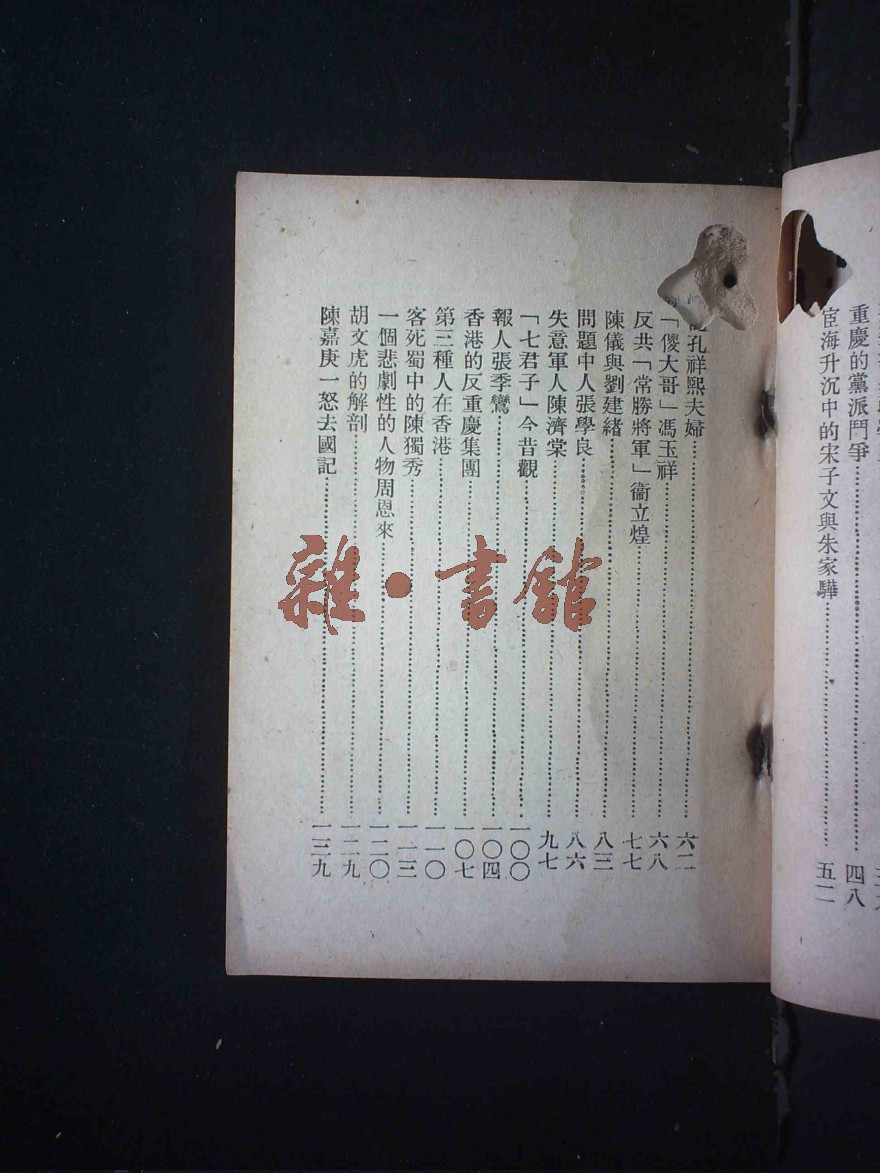 重慶的黨派鬥爭……四八
宦海升沉中的宋子文與朱家驊……五二
孔祥熙夫婦……六二
「傻大哥」馮玉祥……六八
反共「常勝將軍」衞立煌……七七
陳儀與劉建緒……八三
問題中人張學良……八六
失意軍人陳濟棠……九七
「七君子」今昔觀……一〇〇
報人張季鸞……一〇四
香港的反重慶集團……一〇七
第三種人在香港……一一〇
客死蜀中的陳獨秀……一一三
一個悲劇性的人物周恩來……一二〇
胡文虎的解剖……一二九
陳嘉庚一怒去國記……一三九
雜·書館